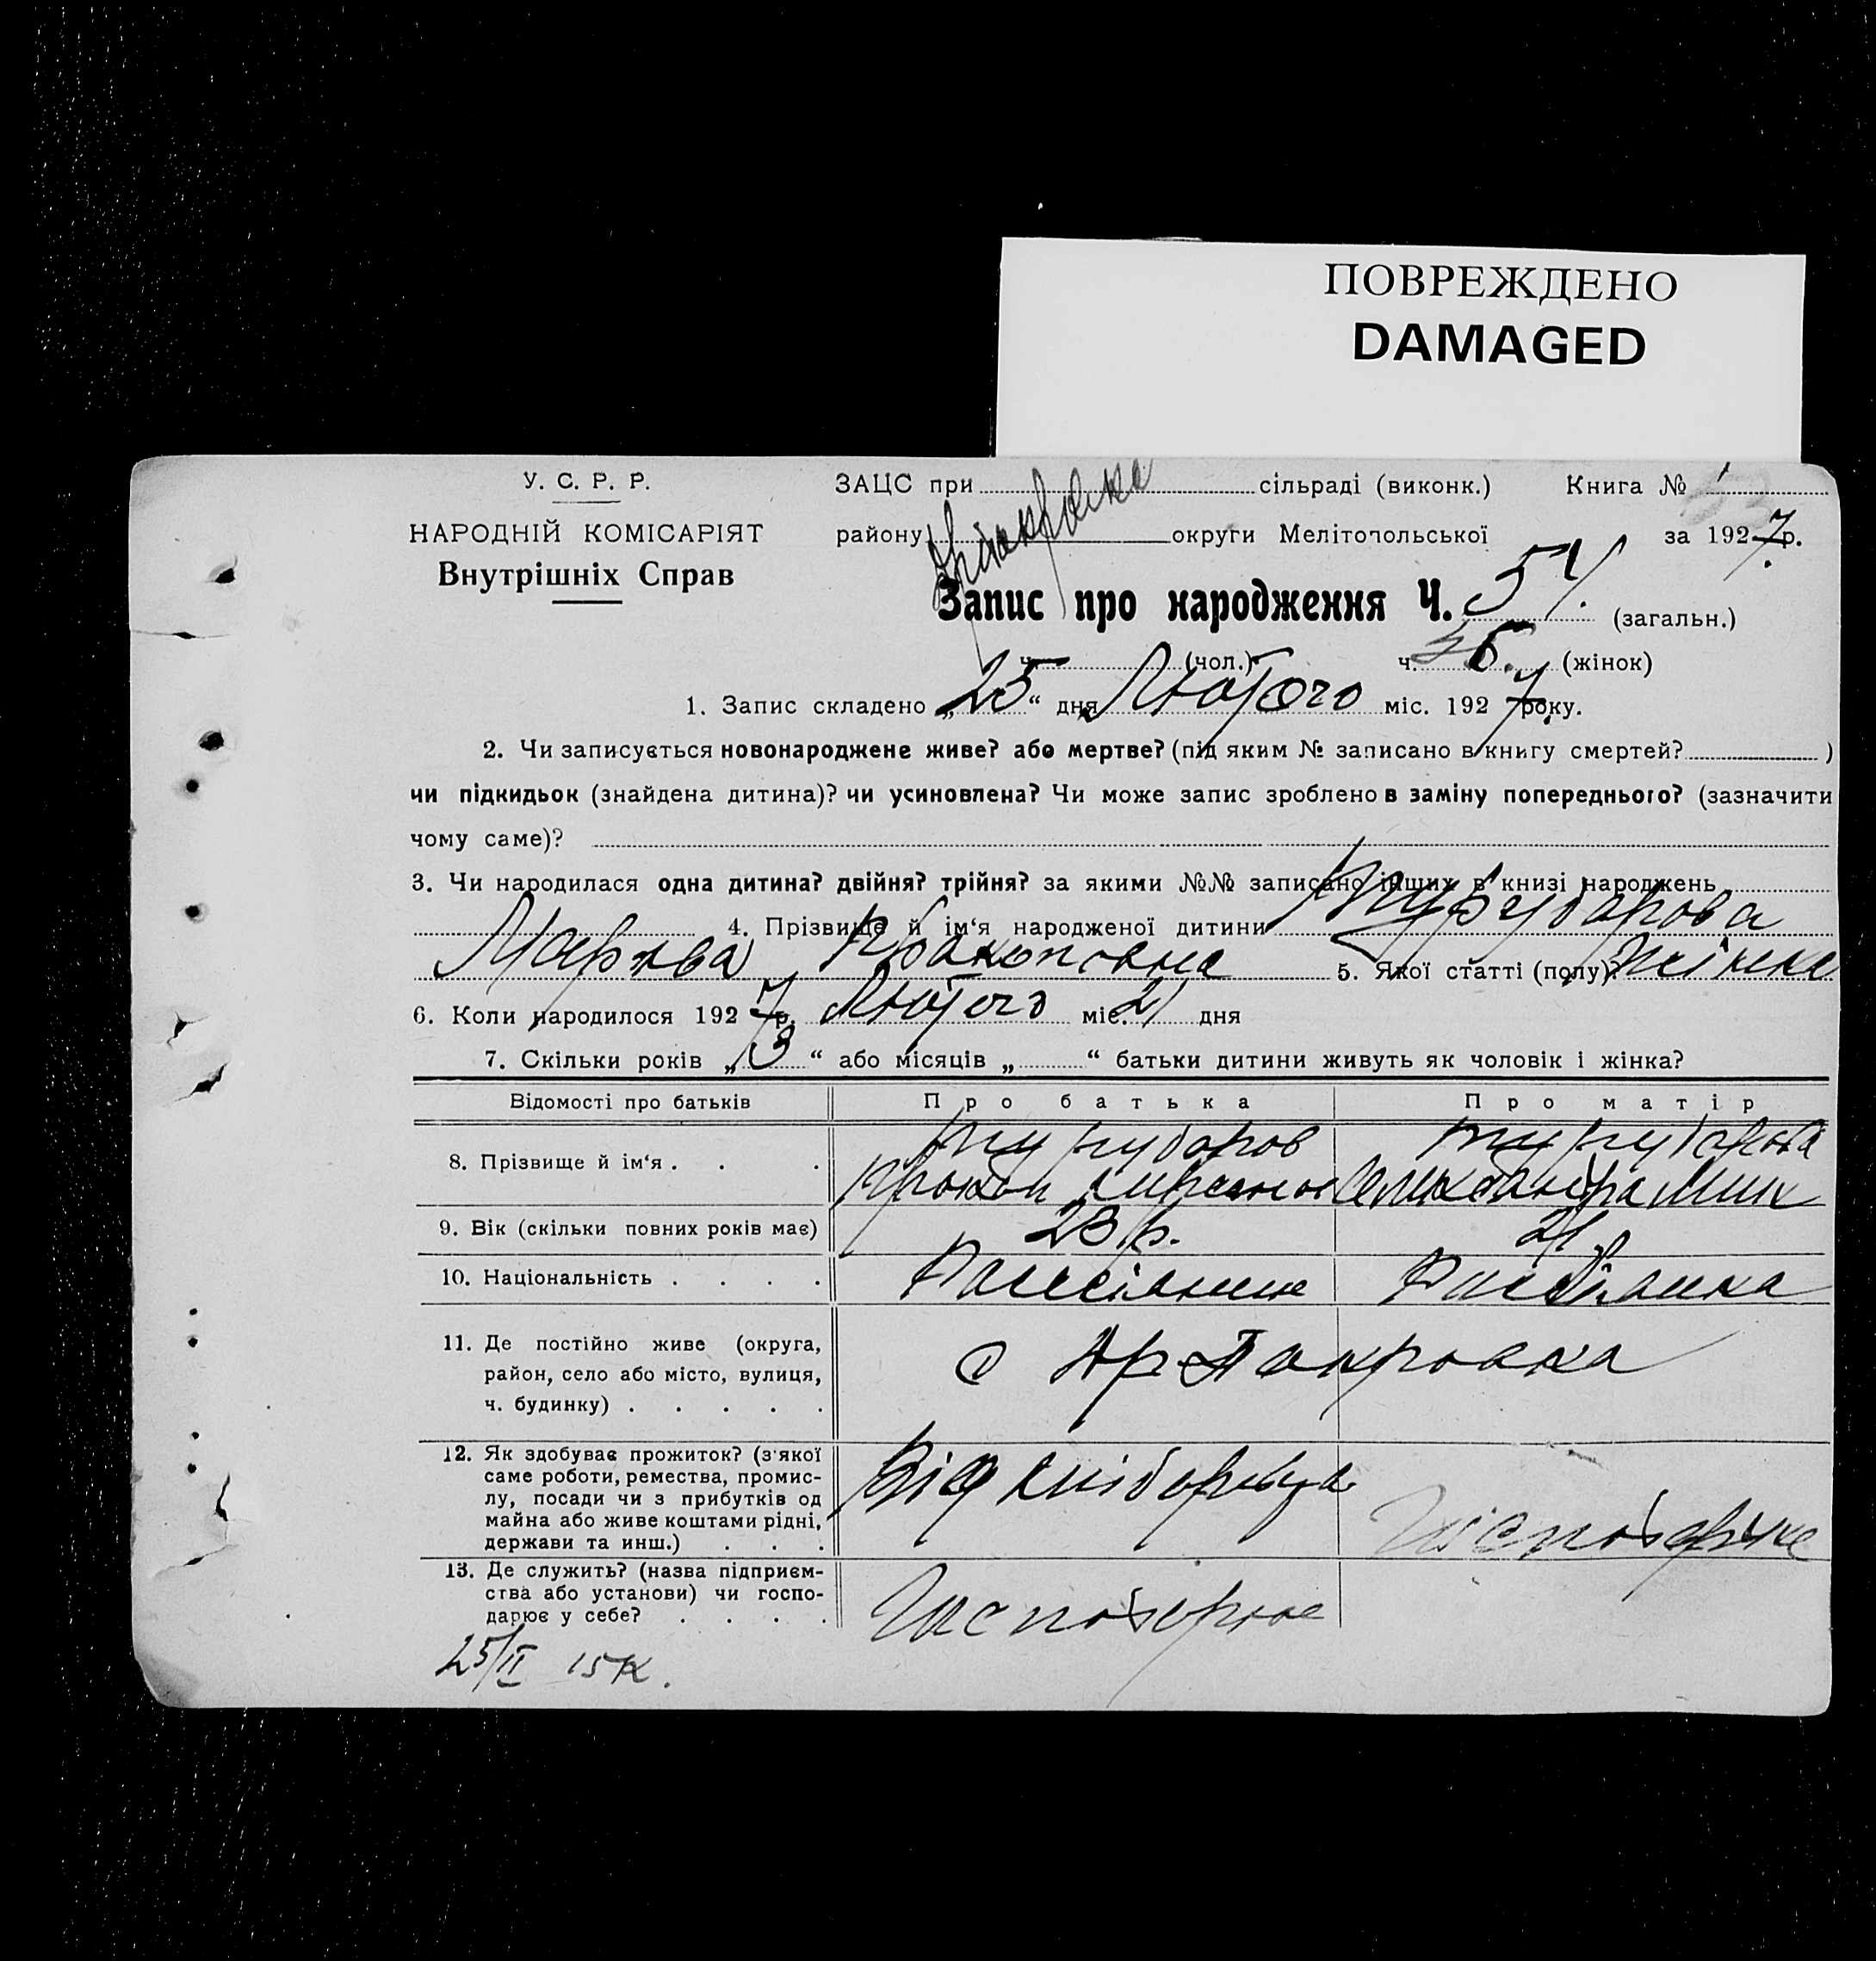 ПОВРЕЖДЕНО
DAMAGED
У. С. Р. Р.
НАРОДНІЙ КОМІСАРІЯТ
Внутрішніх Справ
ЗАЦС при сільраді (виконк.) Книга №
району округи Мелітопольської за 1927 р.
Запис про народження Ч. 57. (загальн.)
ч. (чол.) ч. (жінок)
1. Запис складено „25“ дня Лютого міс. 1927 року.
2. Чи записується новонароджене живе? або мертве? (під яким № записано в книгу смертей? )
чи підкидьок (знайдена дитина)? чи усиновлена? Чи може запис зроблено в заміну попереднього? (зазначити
чому саме)?
3. Чи народилася одна дитина? двійня? трійня? за якими №№ записано інших в книзі народжень
4. Прізвище й ім'я народженої дитини
5. Якої статті (полу)? Жінка
6. Коли народилося 1927 р. Лютого міс. 21 дня
7. Скільки років „3“ або місяців „ “ батьки дитини живуть як чоловік і жінка?
Відомості про батьків Про батька Про матір
8. Прізвище й ім'я . . .
9. Вік (скільки повних років має) 23 р. 21
10. Національність . . . .
11. Де постійно живе (округа,
район, село або місто, вулиця,
ч. будинку) . . . . .
12. Як здобуває прожиток? (з'якої
саме роботи, ремества, промис-
лу, посади чи з прибутків од
майна або живе коштами рідні,
держави та инш.) . . .
Від хліборобства
13. Де служить? (назва підприєм-
ства або установи) чи госпо-
дарює у себе? . . . .
25/II 15 к.